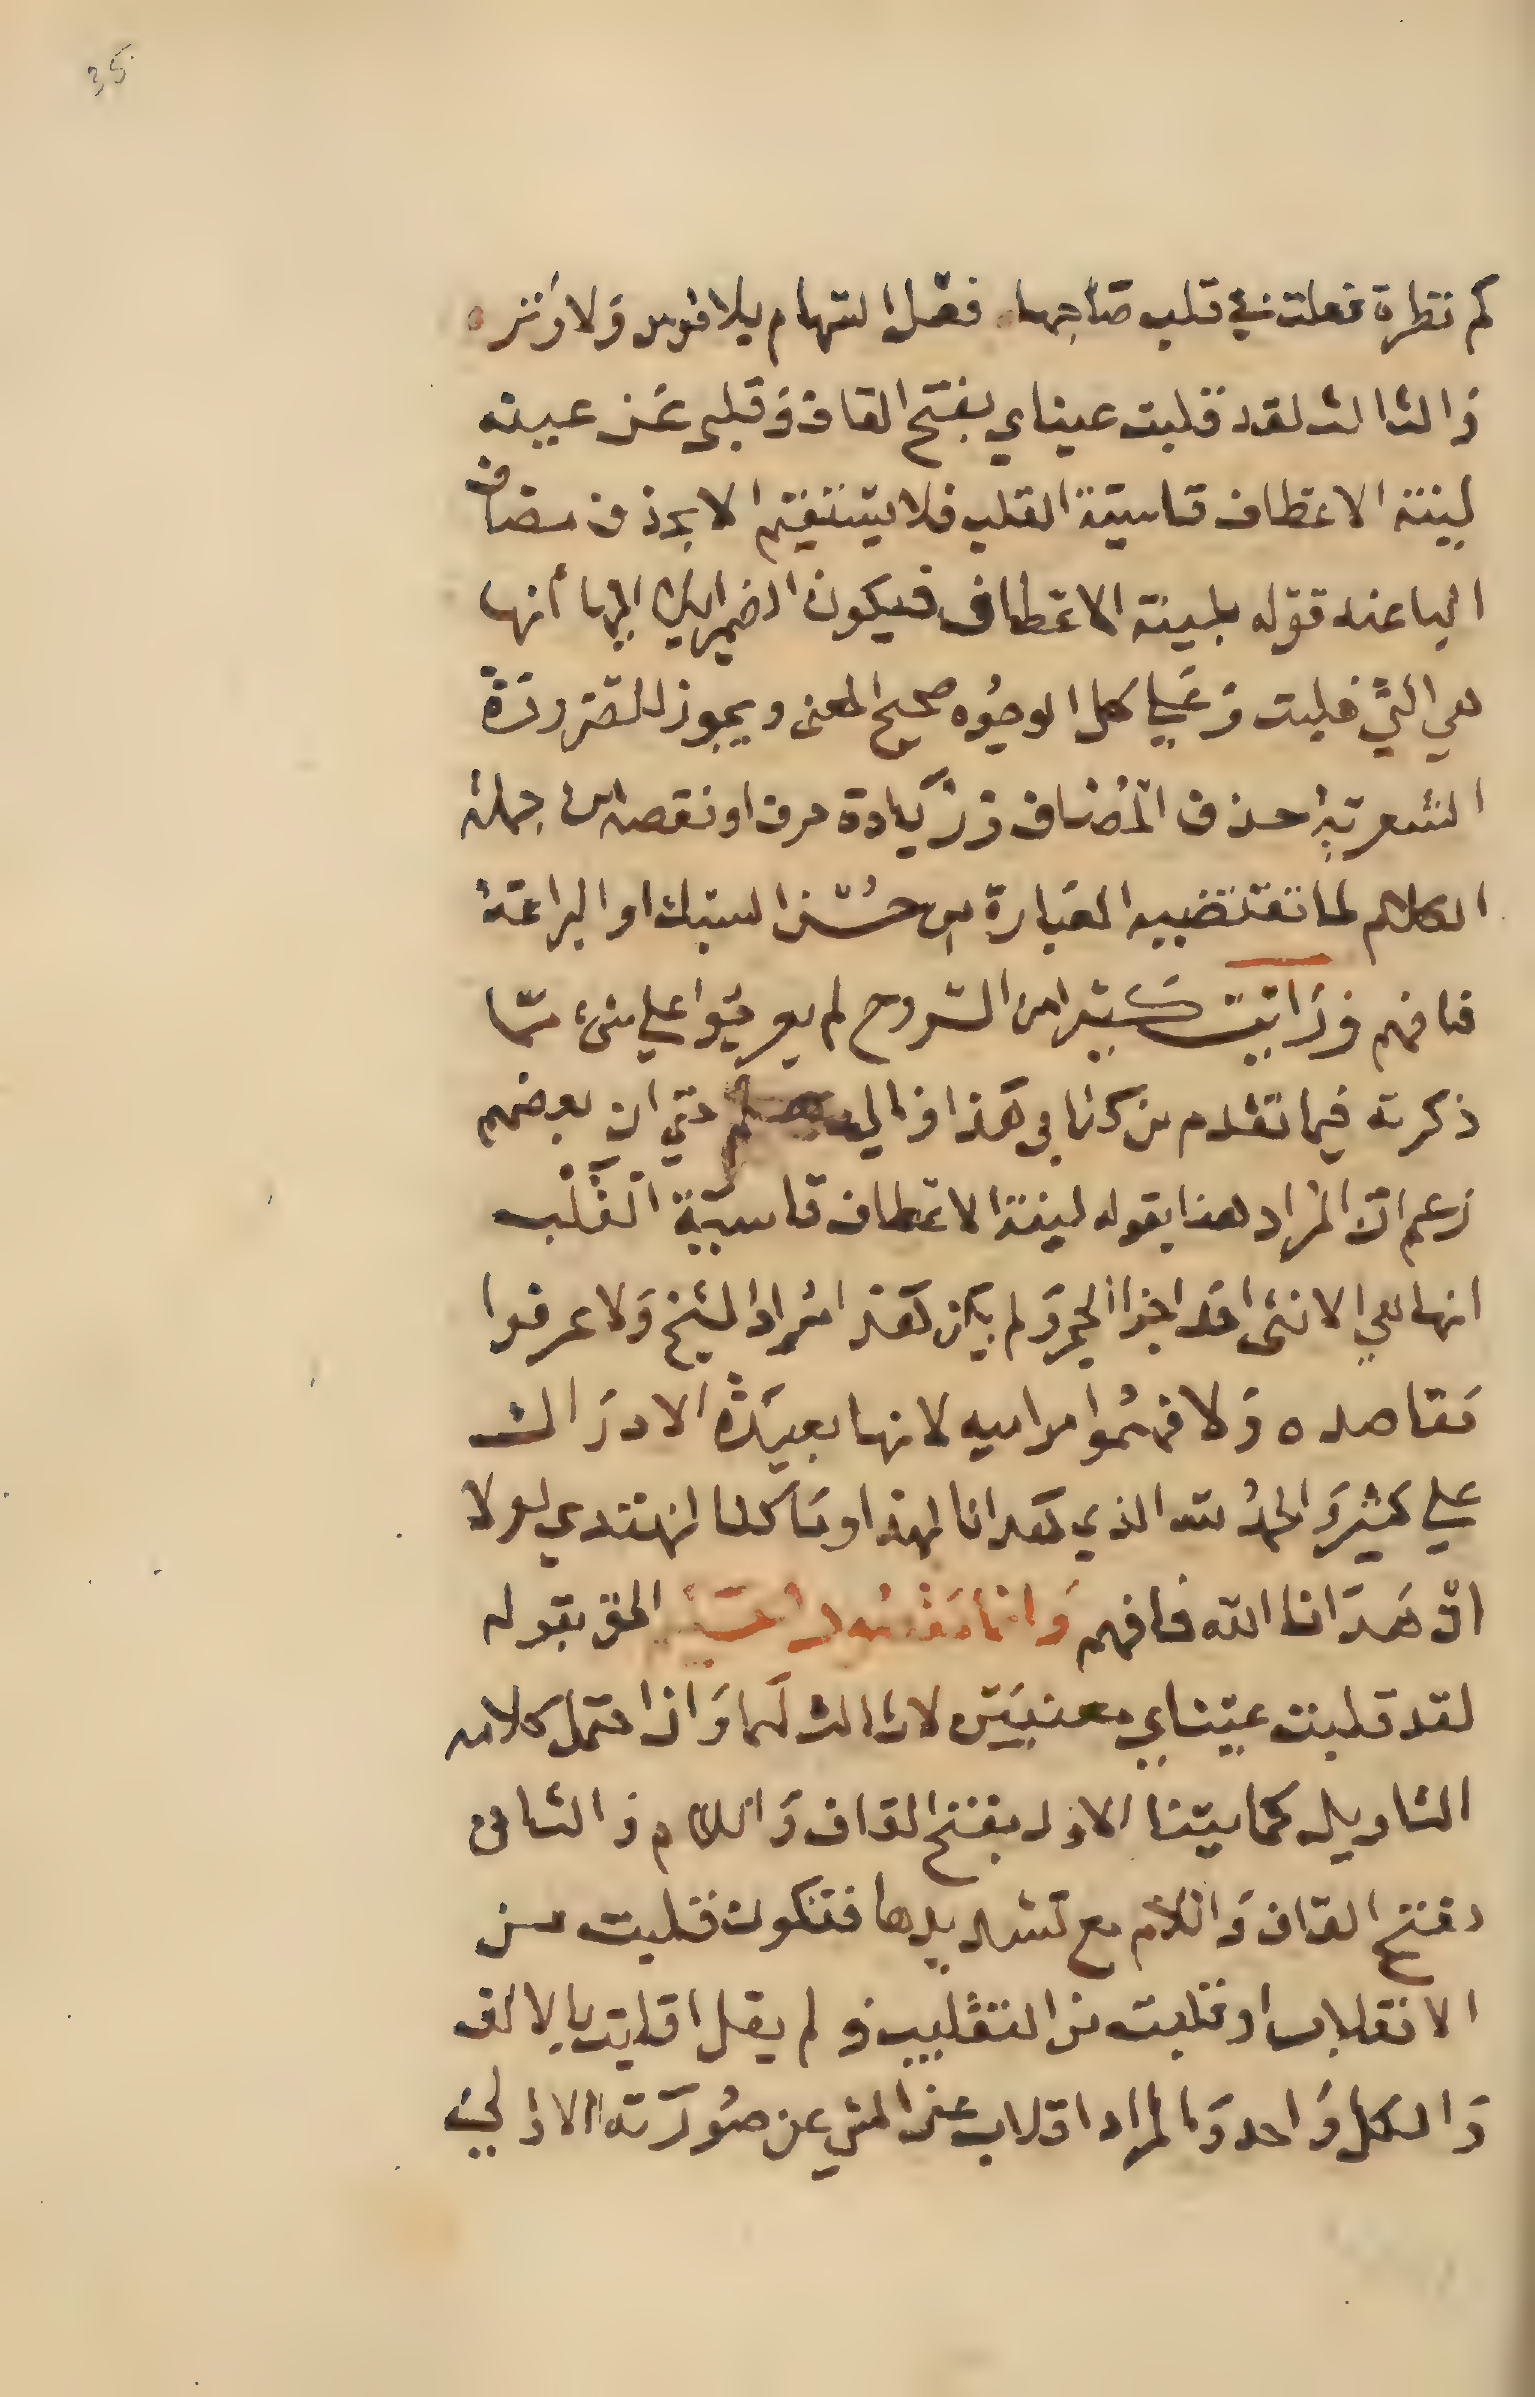 35
كم نظرة فعلت في قلب صاحبها فعل السهام بلا قوس ولا وتر
والثالث لقد قلبت عيناي بفتح القاف وقلبي عن عينه
لينة الاعطاف قاسية القلب فلا يستقيم الا بحذف مضاف
اليها عند قوله بلينة الاعطاف فيكون الضمير اليها أنها
هي التي قلبت وعلي كل الوجوه صحيح المعنى ويجوز للضرورة
الشعرية حذف المُضاف وزيادة حرف او نقصه من جملة
الكلام لما تقتضيه العبارة من حُسن السبك او البراعة
فافهم ورَايت كثيرا من الشروح لم يعرجوا علي شيء ممّا
ذكرته فيما تقدم من كتابي هَذا حتي ان بعضهم
زعم انّ المراد هنا بقوله لينة الاعطاف قاسية القَلْب
انها هي الانثى احد اجزا الحجر وَلم يكن هَذا مُراد الشيخ وَلا عرفوا
مَقاصده وَلا فهمُوا مراميه لانها بعيدَة الادرَاك
علي كثير وَالحمدُ لله الذي هَدانا لهذا ومَا كنا لنهتدي لولا
ان هَدَانا الله فافهم وَانما مَقصُود الحق بقوله
لقد قلبت عيناي معنيَين لا ثالث لهما وَان احتمل كلامه
التاويل كما بيّنا الاول بفتح القاف وَاللام والثاني
بفتح القاف وَاللام مع تشديدها فتكون قلبت من
الانقلاب او قلبت من التقليب ولم يقل اقلبت بالالف
وَالكل وَاحد وَالمراد اقلاب عين الشي عن صُورَته الاولي